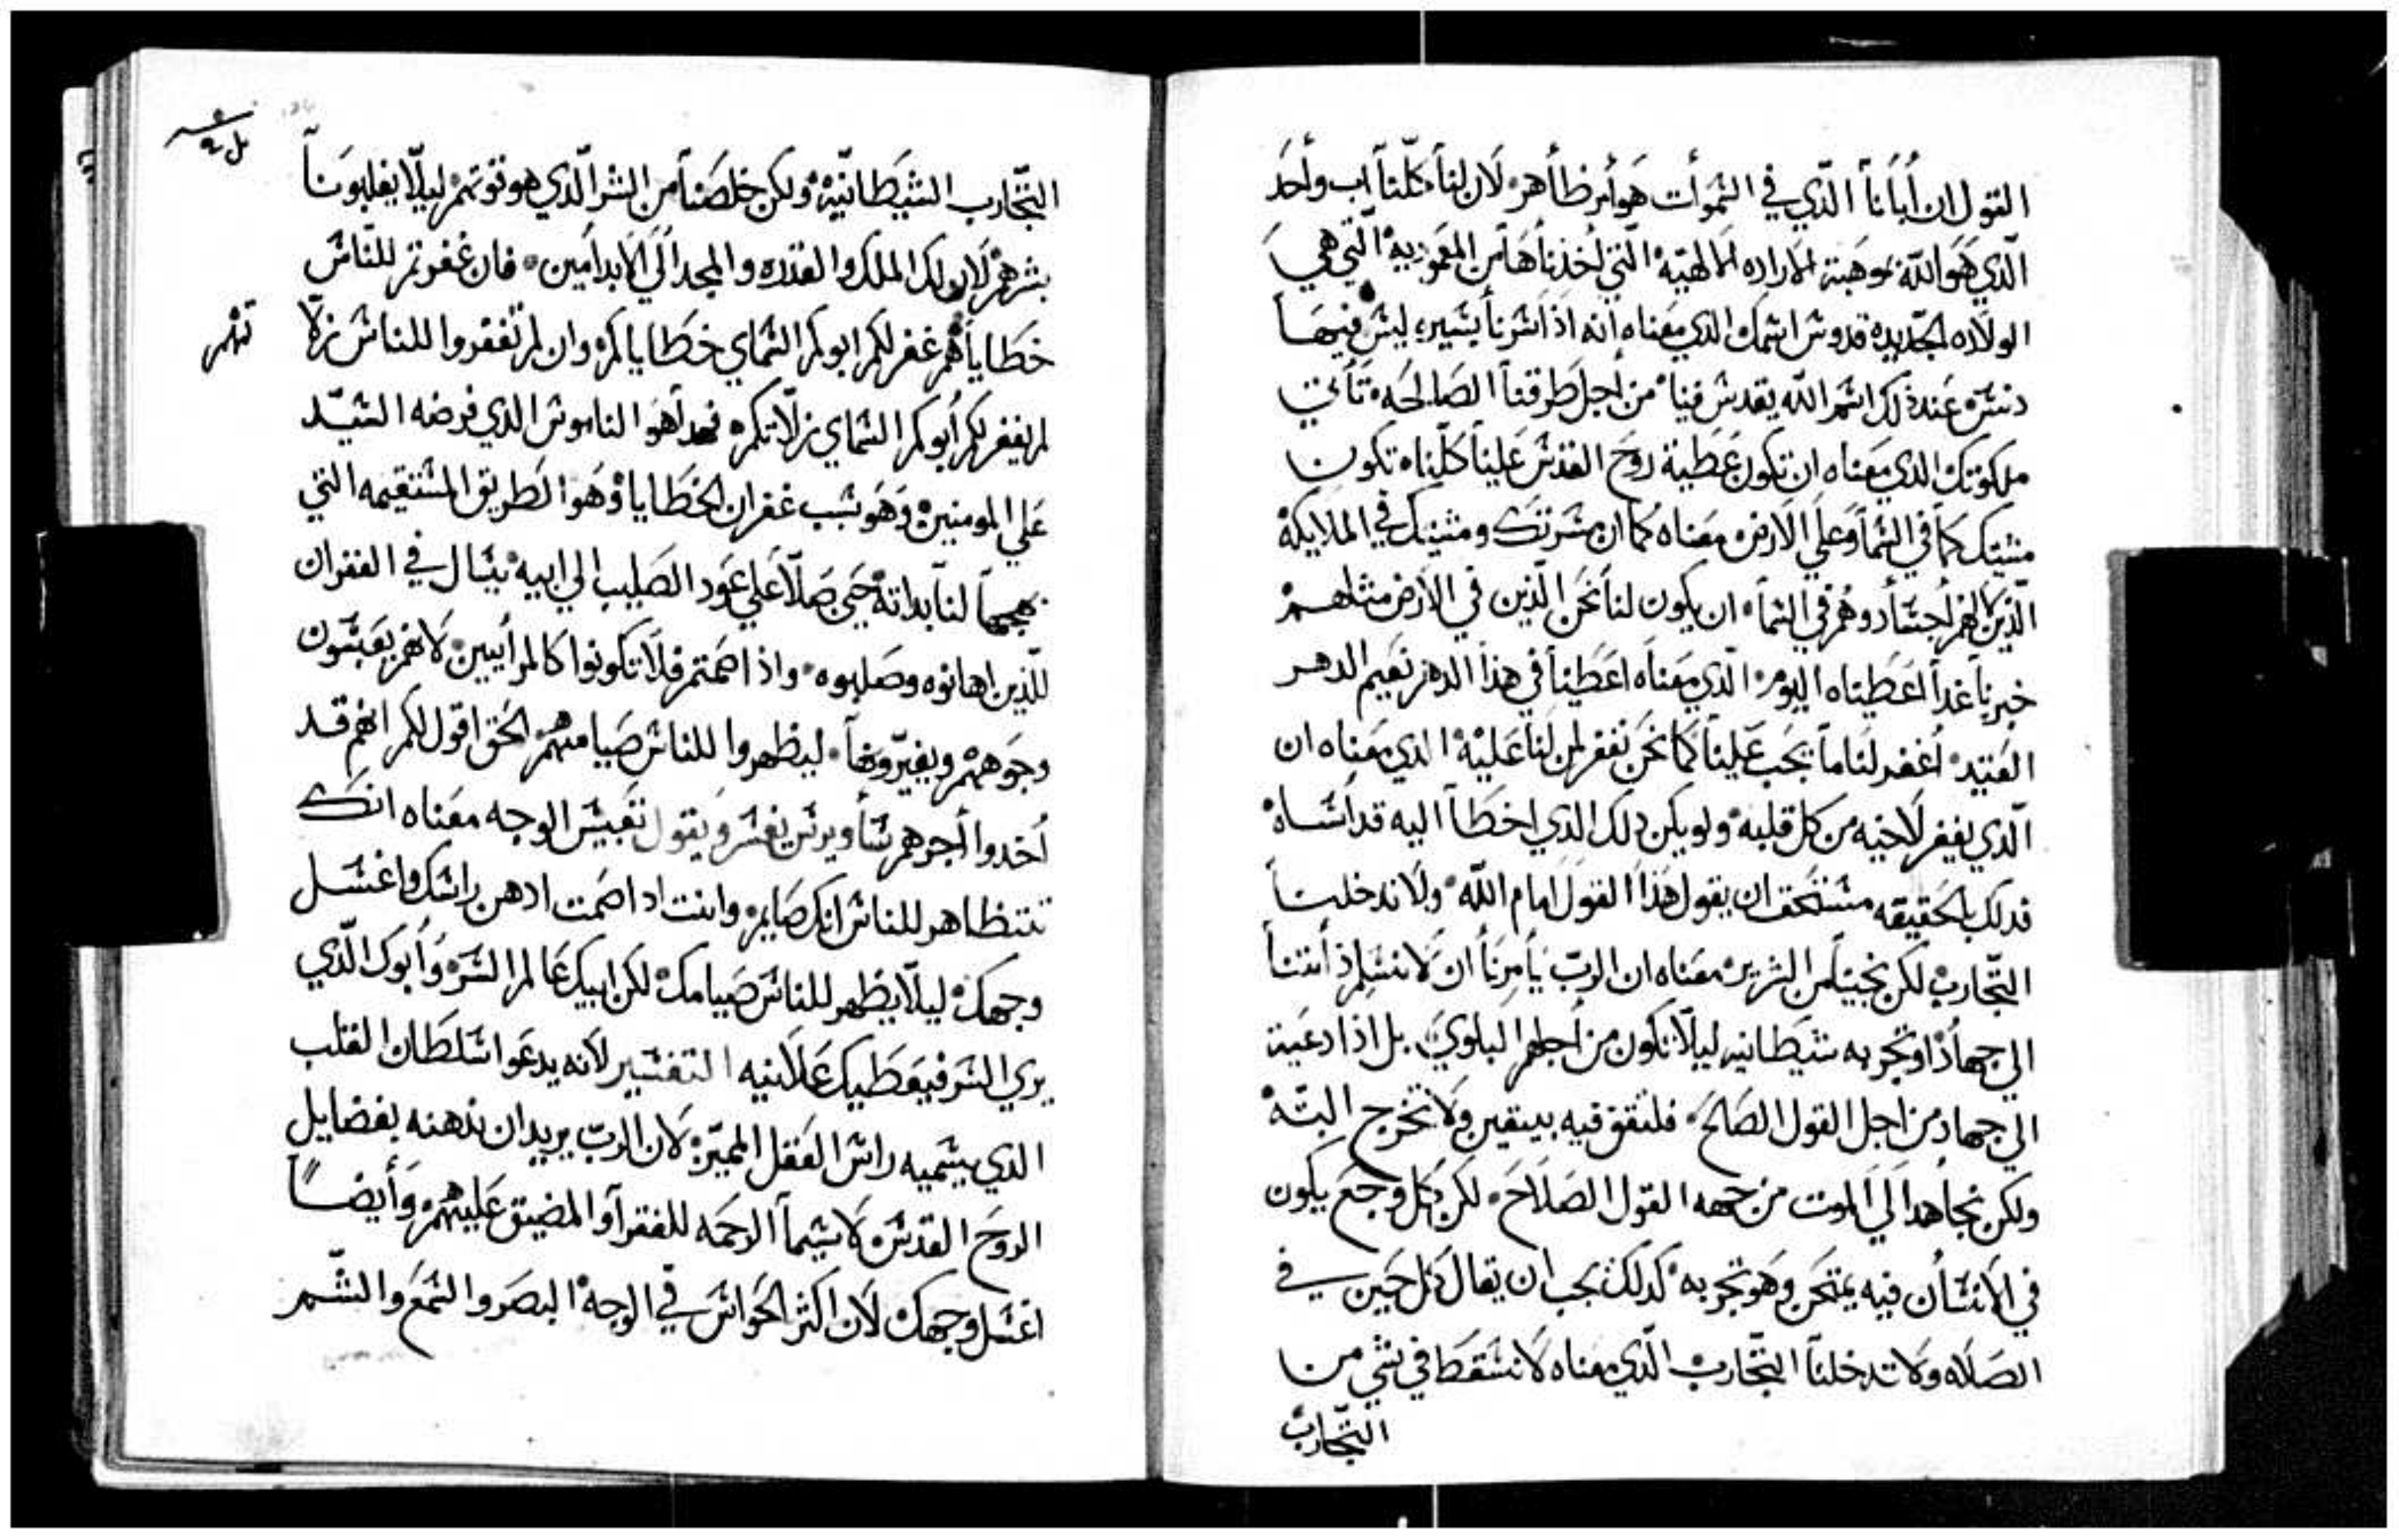 القول ان أبانا الّذي في السموات هو أمر ظاهر لان لنا كلّنا أب وأحد
الّذي هو اللّه موهبة الاراده الالهيّه الّتي أخذناها من المعموديه الّتي هي
الولاده الجديده قدوس اسمك الذي معناه انه اذا سرنا بسيره ليس فيها
دنس عند ذلك اسم الله يقدس فينا من أجل طرقنا الصالحه تأتي
ملكوتك الذي معناه ان تكون عطية روح القدس علينا كلّنا تكون
مشيتك كما في السما وعلي الارض معناه كما ان مسرتك ومشيتك في الملايكة
الّذين لا لهم أجسأد وهم في السما ان يكون لنا نحن الّذين في الارض مثلهم
خبزنا غدا اعطيناه اليوم الّذي معناه اعطينا في هذا الدهر نعيم الدهر
العتيد أغفر لنا ما يجب علينا كما نحن نغفر لمن لنا عليه الذي معناه ان
الّذي يغفر لاخيه من كل قلبه ولو يكن ذلك الذي اخطأ اليه قد اساه
فدلك بالحقيقه مستحق ان يقول هذا القول امام اللّه ولا تدخلنا
التّجارب لكن نجينا من الشرير معناه ان الربّ يأمرنا ان لا نسلم ذأتنا
الي جهاد او تجربه شيطانيه ليلّا تكون من أجلهم البلوي بل اذا دعينا
الي جهاد من اجل القول الصالح فلنقف فيه بيقين ولا نخرج البتّه
ولكن نجاهد الي الموت من جهه القول الصلاح لكن كل وجع يكون
في الانسأن فيه يمتحن وهو تجربه كدلك يجب ان يقال كل حين في
الصلاه ولا تدخلنا التّجارب الّذي معناه لا نسقط في شي من
التّجارب
التّجارب الشيطانيّه ولكن خلصنا من الشر الّذي هو قوتهم ليلّا يغلبونا
بشرهم لان لك الملك والقدره والمجد الي الابد امين فان غفرتم للنّاس
خطاياهم غفر لكم ابوكم السماي خطاياكم وان لم تغفروا للناس زلّا
تهم
لم يغفر لكم أبوكم السماي زلّاتكم فهدا هو الناموس الذي فرضه السيّد
علي المومنين وهو سبب غفران الخطايا وهو الطريق المستقيمه التي
نهجها لنا بداته حتي صلّا علي عود الصليب الي ابيه يسال في الغفران
للّذين اهانوه وصلبوه واذا صمتم فلا تكونوا كالمرأيين لانهم يعبسون
وجوههم ويغيّرونها ليظهروا للناس صيامهم الحق اقول لكم انهم قد
أخدوا أجرهم سأويرس يفسر ويقول تعبيس الوجه معناه انك
تتظاهر للناس انك صايم وانت ادا صمت ادهن راسك واغسل
وجهك ليلّا يظهر للناس صيامك لكن ابيك عالم السر وأبوك الّذي
يري السر فيعطيك علانيه التفسير لانه يدعوا سلطان القلب
الذي يسميه راس العقل المميّز لان الربّ يريد ان ندهنه بفضايل
الروح القدس لا سيما الرحمه للفقرآ والمضيق عليهم وأيضاً
اغسل وجهك لان اكثر الحواس في الوجه البصر والسمع والشّم